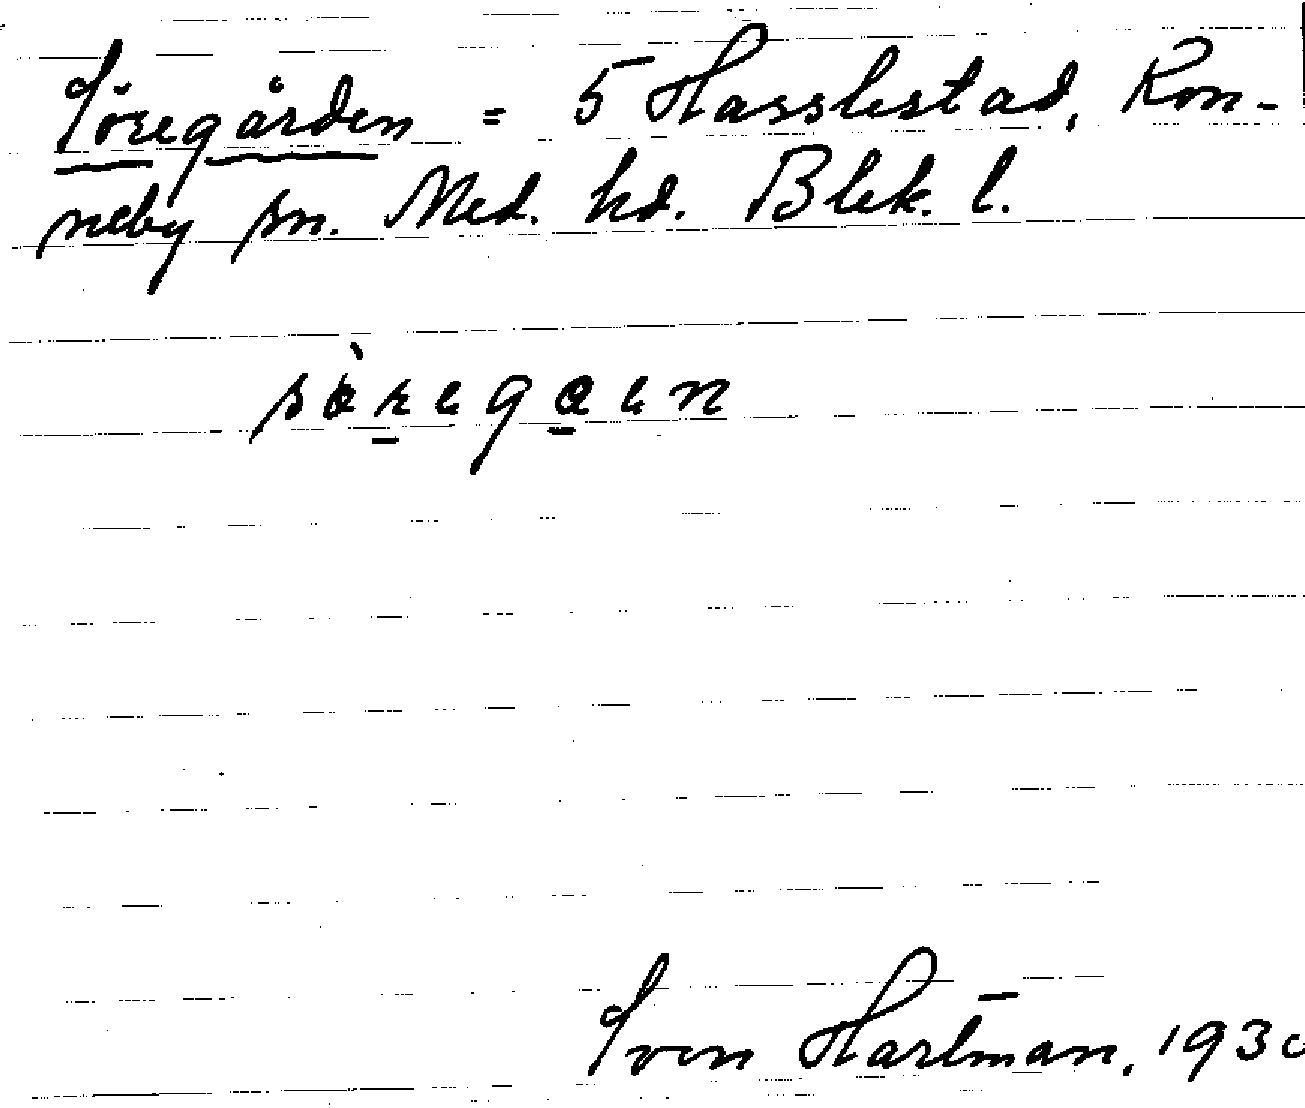 Söregården = 5 Hasslestad, Ron-
neby sn. Med. hd. Blek. l.
sö̀regɑen
Sven Hartman, 1930